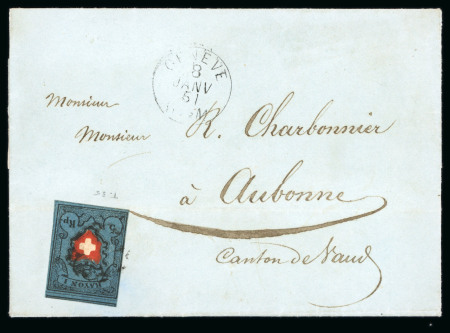 GENÈVE
8
JANV
51
Monsieur
Monsieur R. Charbonnier
à Aubonne
Canton de Vaud
5 Rp.
RAYON I